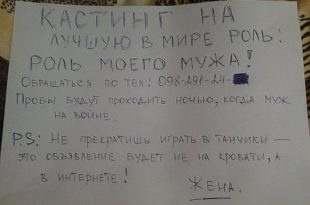 КАСТИНГ НА
ЛУЧШУЮ В МИРЕ РОЛЬ:
РОЛЬ МОЕГО МУЖА!
ОБРАЩАТЬСЯ ПО ТЕЛ: 098-291-24-
ПРОБЫ БУДУТ ПРОХОДИТЬ НОЧЬЮ, КОГДА МУЖ
НА ВОЙНЕ.
P.S.: НЕ ПРЕКРАТИШЬ ИГРАТЬ В ТАНЧИКИ —
ЭТО ОБЪЯВЛЕНИЕ БУДЕТ НЕ НА КРОВАТИ, А
В ИНТЕРНЕТЕ!
ЖЕНА.